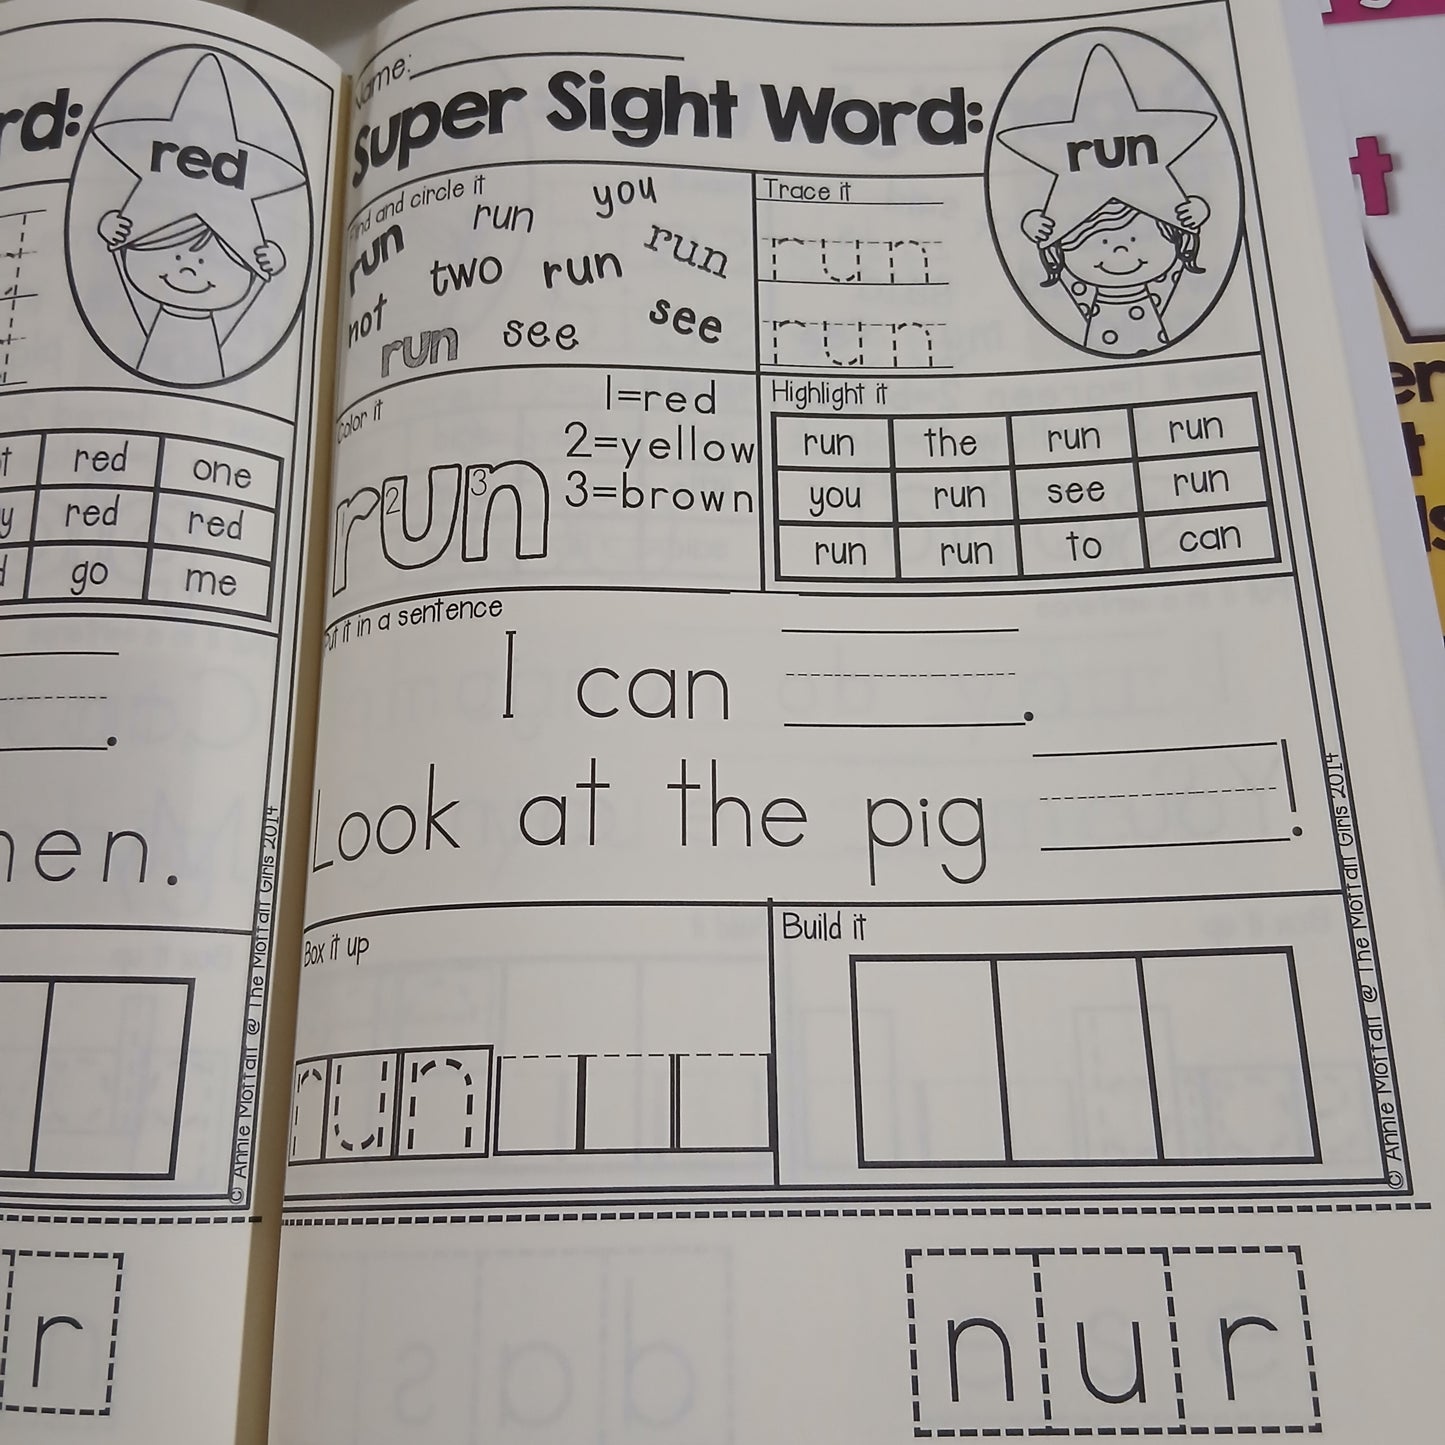 rd:
red
red
one
y
red
red
go
me
hen.
© Annie Moffatt @ The Moffatt Girls 2014
r
Name:
Super Sight Word:
run
Find and circle it
run
you
run
run
two
run
not
run
see
see
Trace it
run
run
Color it
1=red
2=yellow
3=brown
1 2 3
run
Highlight it
run the run run
you run see run
run run to can
Put it in a sentence
I can .
Look at the pig !
Box it up
run
Build it
© Annie Moffatt @ The Moffatt Girls 2014
n u r
t
er